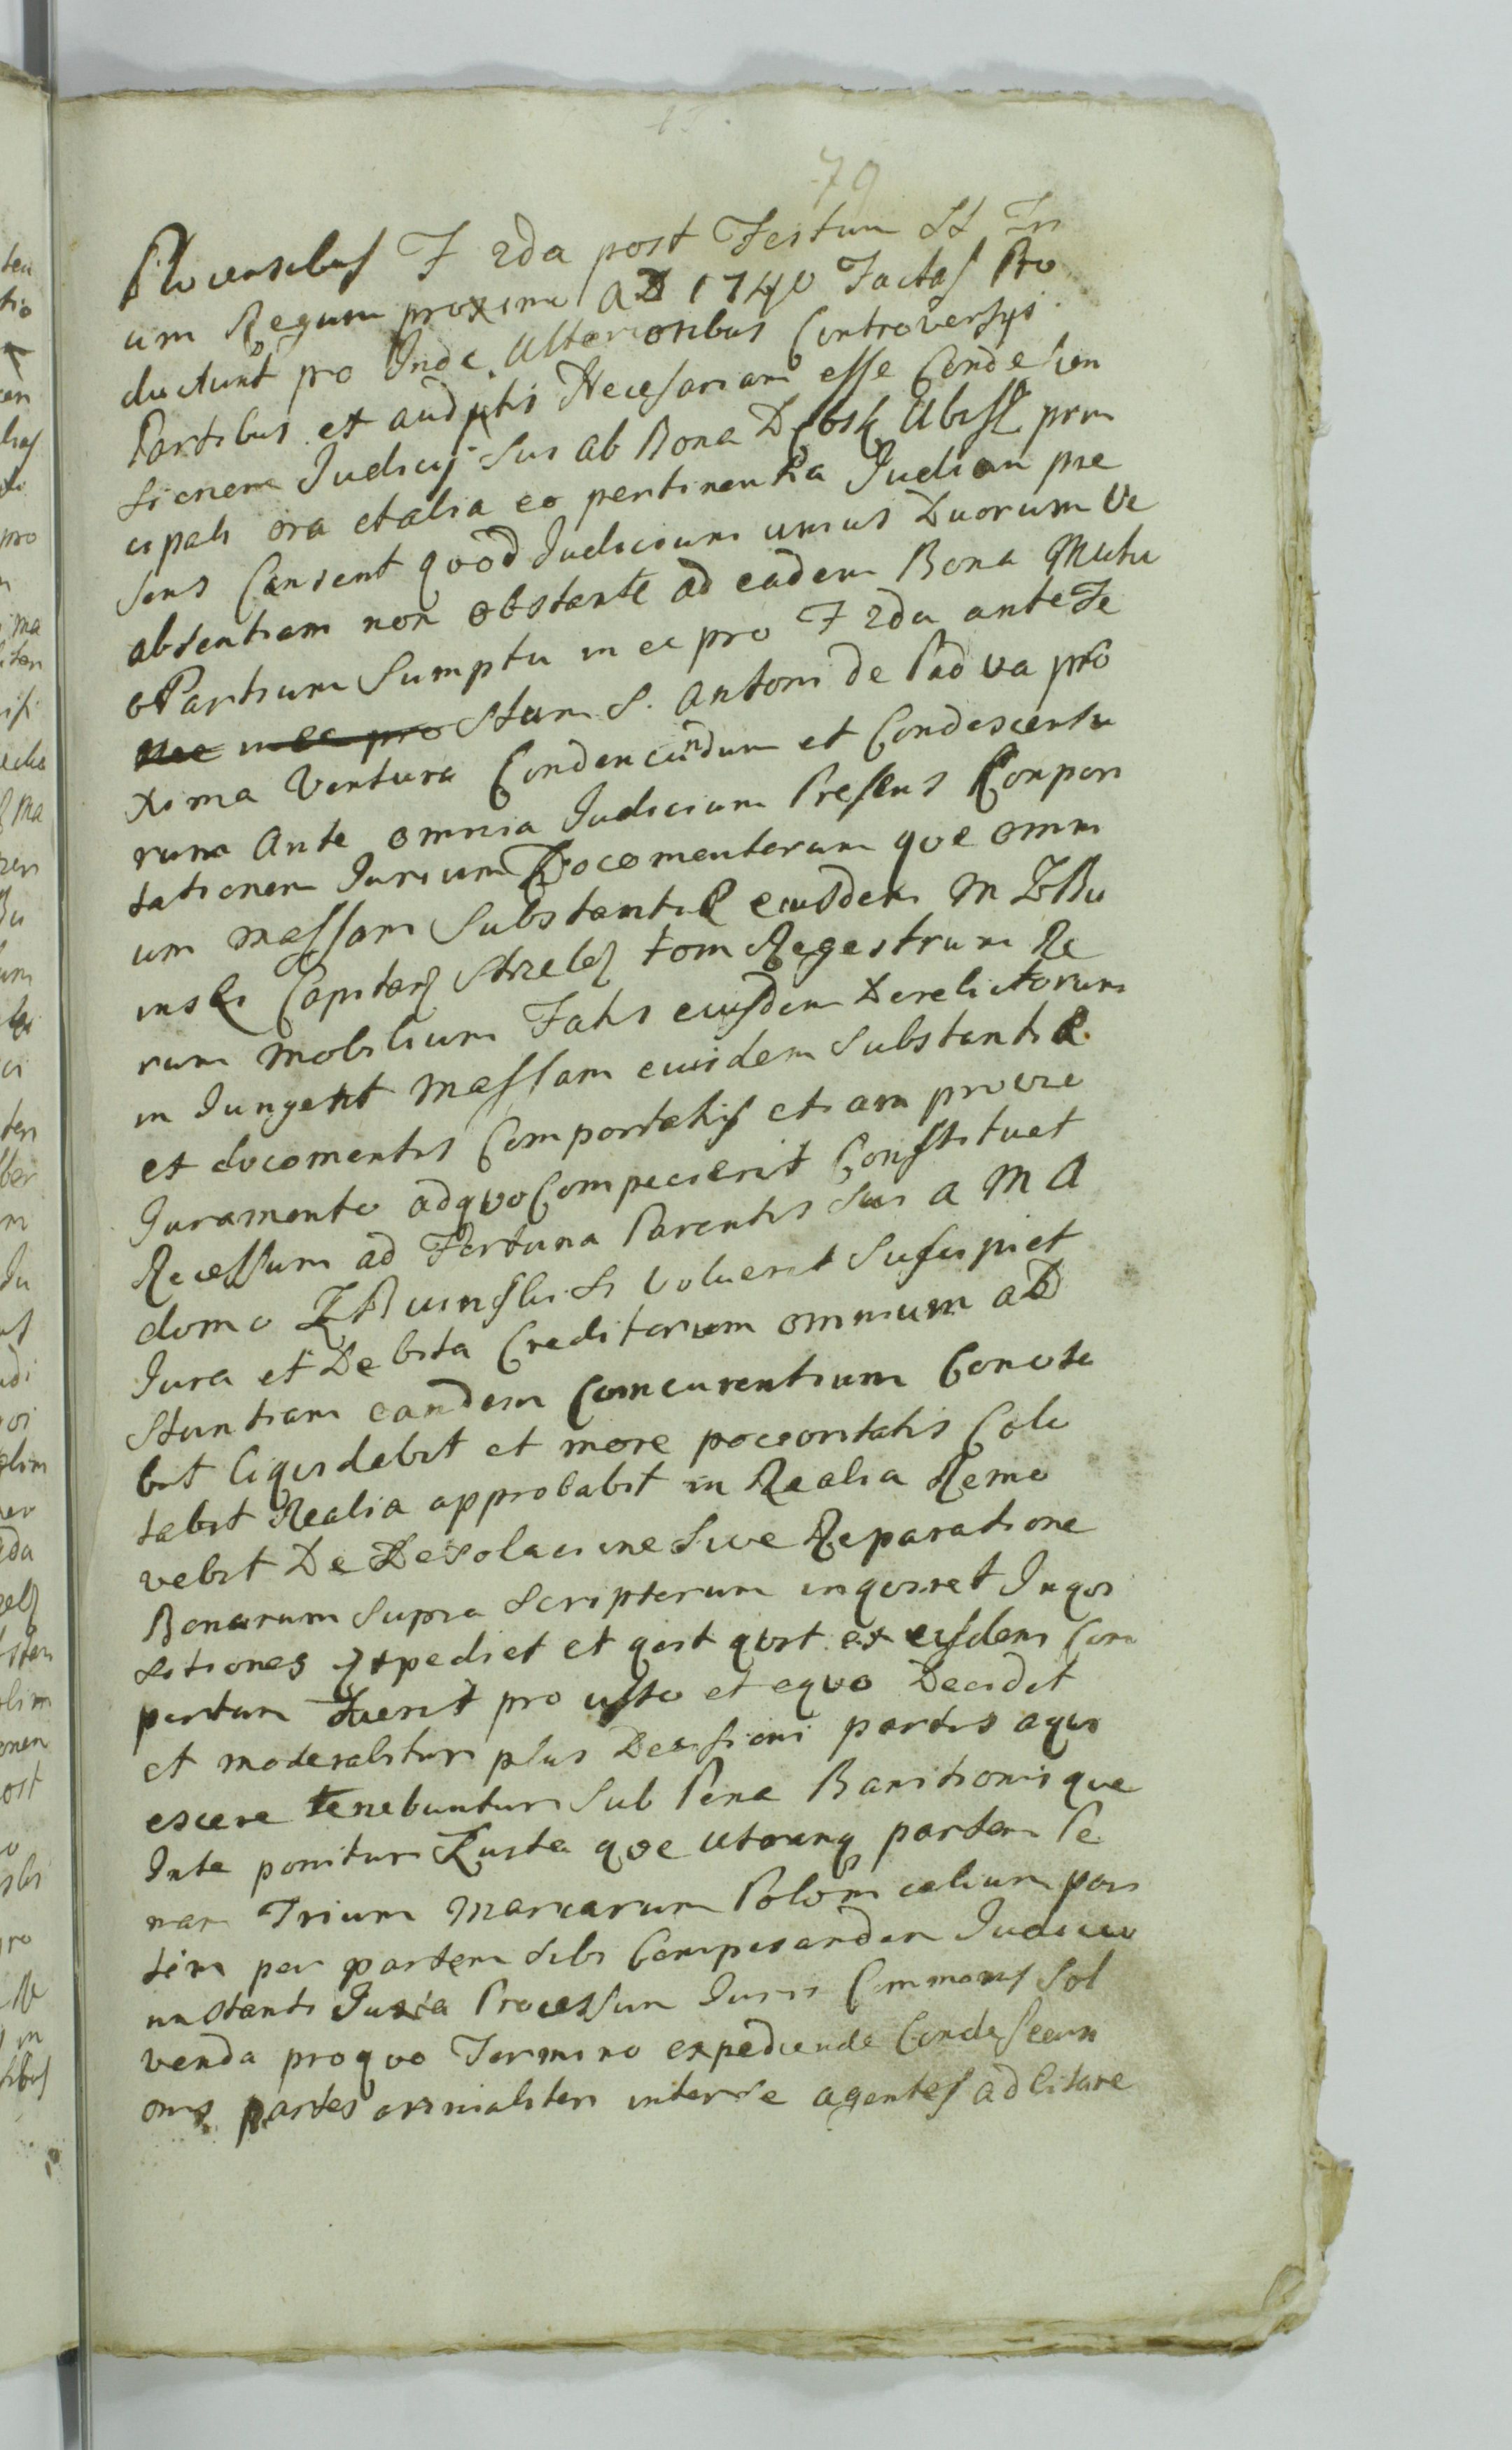 79
Plocensibus F 2da post Festum SS Tri
um Regum proxima AD 1740 Factas Pro
ducturit pro Inde Ulterioribus Controversys
Partibus et auditis Necesariam esse Condescen
sionem Judicij Sui ab Bona Ubi prin
cipali ora et alia eo pertinentia Judicium pre
sens Censent qvod Judicium unius Duorum Ve
absentiam non obstante ad eadem Bona Mutu
o Partium Sumptu in ea pro F 2da ante Fe
stum S. Antoni de Padva pro
xima Ventura Condencindum et Condescensu
rum Ante omnia Judicium Presens Compor
tationem Jurium Docomentorum qve omni
um massam Substantiæ eiusdem M ZBu
inski Capitan Strzelec tom Regestrum Re
rum mobilium Fatis eiusdem Derelictorum
in Junget Massam euisdem Substantiæ
et docomentis Comportatis etiam previe
Juramento ad qvo Compecierit Constituet
Recessum ad Fortuna Parentis Sui a M A
domo ZBuinski Si Voluerit Suscipiet
Jura et Debita Creditorum omnium ad
Stantiam eandem Comcurentium Concita
bit liqvidabit et more pocioritatis Colo
tabit Realia approbabit in Realia Remo
vebit De Desolacione Sive Reparatione
Bonorum supra Scriptorum inqviret Inqvi
sitiones Expediet et qvit qvit ex eisdem Com
pertum Fuerit pro iusto et eqvo Decidet
et moderabitur plus Decisioni partis aqvi
escere tenebuntur Sub Pena Banitionis que
Inte ponitur Zusta qve Utranq partem Pe
nam Trium Marcarum Polonicalium par
tim per partem Sibi Compesandam Judicio
instanti Juxta Processum Juris Commonis Sol
venda pro qvo Termino expediende Condescen
onis partes originaliter inter se agentes ad Citare